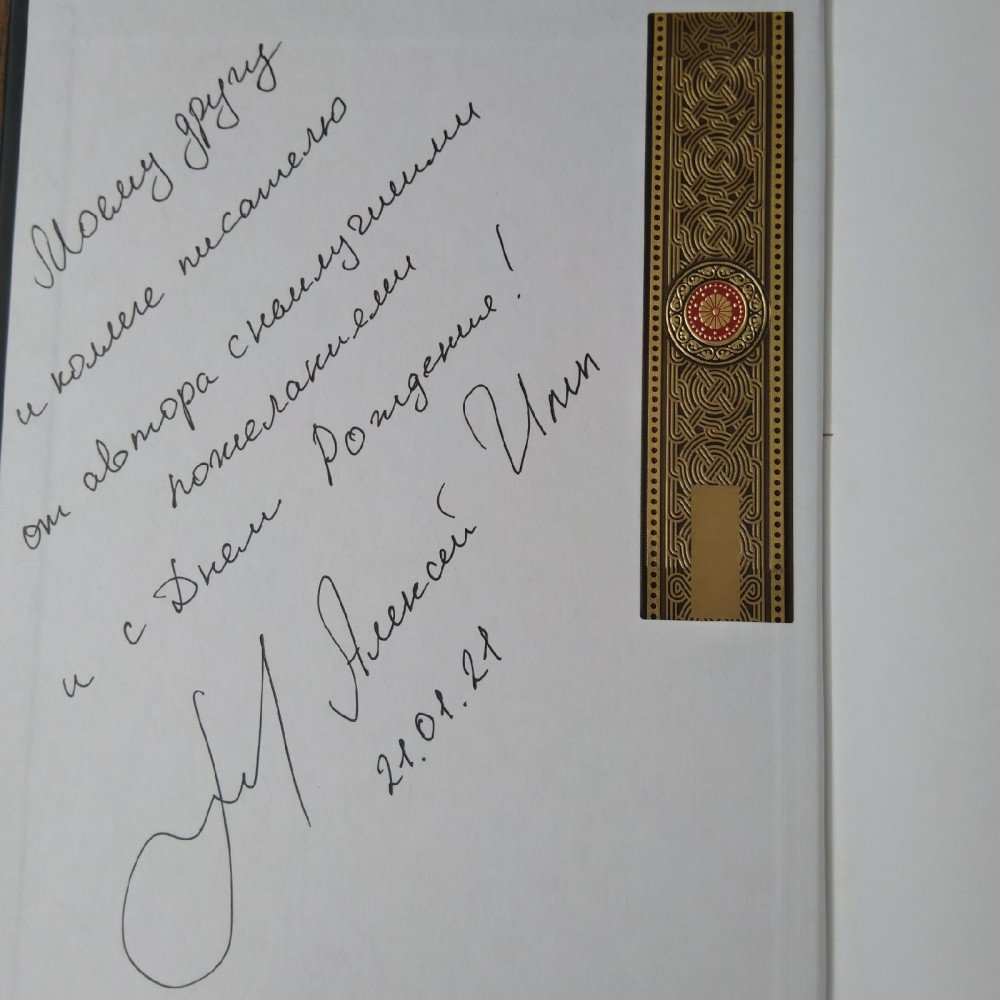 Моему другу
и коллеге писателю
от автора с наилучшими
пожеланиями
и с Днем Рождения!
Алексей
21.01.21